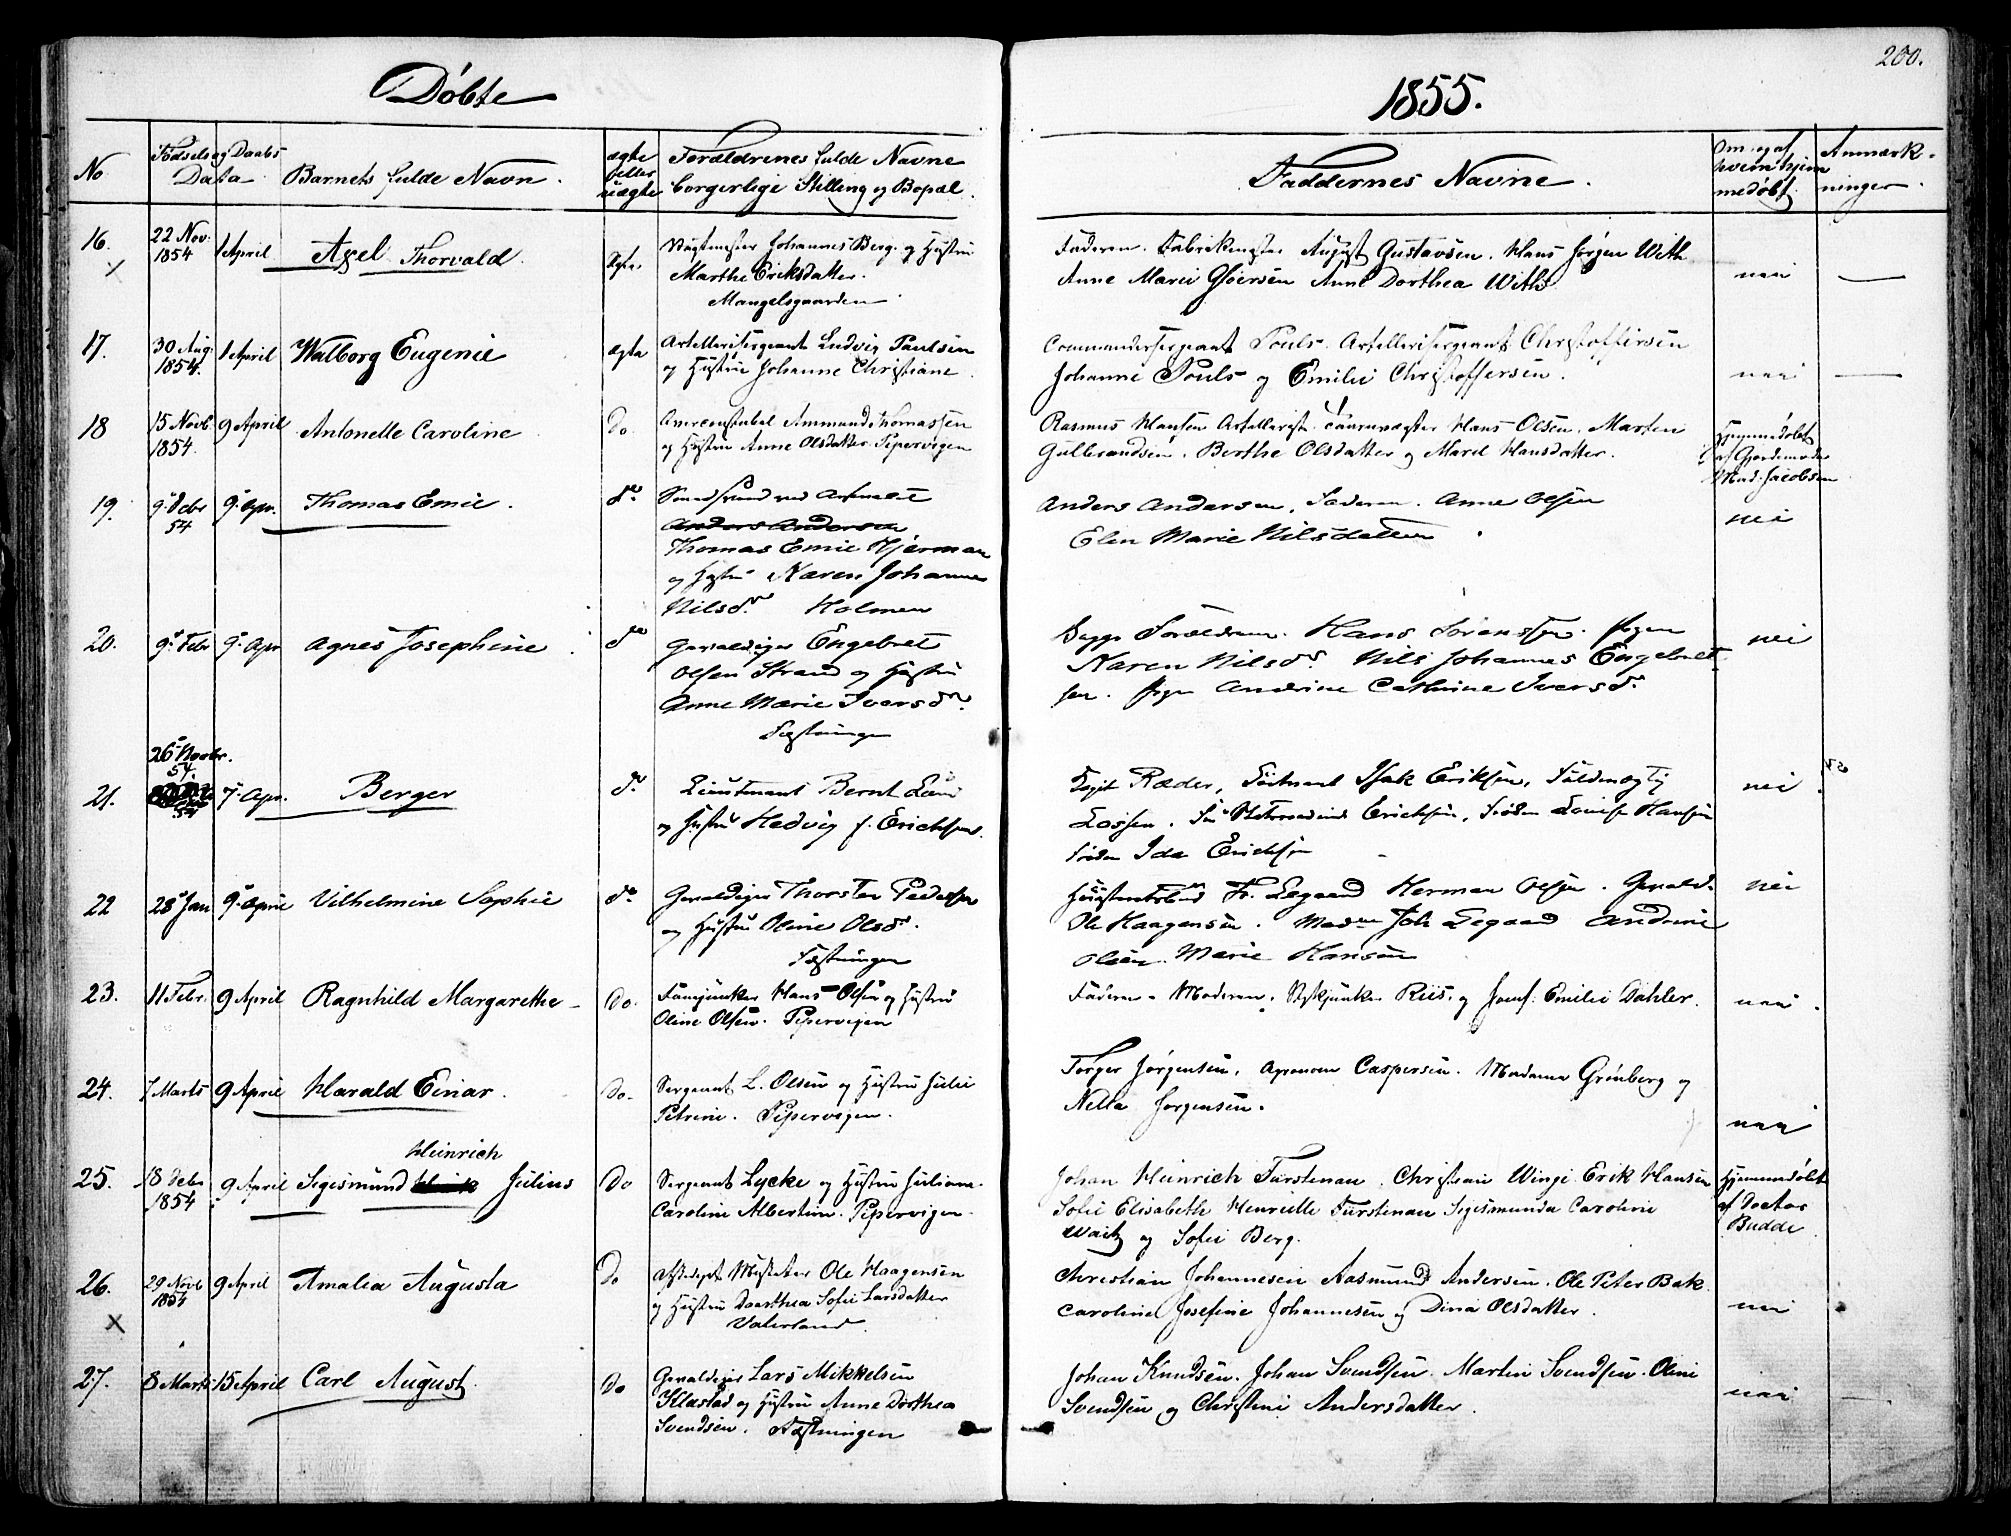 200.
Døbte
1855.
No
Fødsels og Daabs Data
Barnets fulde Navn.
ægte eller uægte
Forældrenes fulde Navne borgerlige Stilling og Bopæl.
Faddernes Navne.
Om og af hvem hjemmedøbt
Anmærkninger.
16.
22 Nov: 1854
1 April
Axel Thorvald.
Ægte
Vagtmester Johannes Berg og Hustru
Marthe Eriksdatter.
Mangelsgaarden
Faderen. Fabrikmester August Gustavsen. Hans Jørgen With
Anne Marie Anne Dorthea With
nei
17.
30 Aug. 1854.
1 April
Walborg Eugenie
ægte
Artellerisergeant Ludvig Paulsen
og Hustru Johanne Christiane.
Commandersergeant Pouls. Artellerisergeant Christoffersen
Johanne Pouls og Emilie Christoffersen.
nei
18
15 Novb 1854.
9 April
Antonette Caroline
Do
Ammund Thomassen
og Hustru Anne Olsdatter Pipervigen
Rasmus Hansen Artellerist. Hans Olsen. Marten
Gulbrandsen. Berthe Olsdatter og Maret Hansdatter.
Hjemmedøbt
af Gjordemoder
Mad. Jacobsen
19.
9 Debr 54
9 Apr.
Thomas Emil.
do
Smedsvend ved Arsenalet
Anders Andersen
Thomas Emil Hjerman
og Hustru Karen Johanne
Nilsdr. Holmen
Anders Andersen, Faderen. Anne Olsen
Elen Marie Nilsdatter.
nei
20.
9 Febr
9 Apr
Agnes Josephine
do
Gevaldiger Engebret
Olsen Strand og Hustru
Anne Marie Iversdr.
Fæstningen
Begge Forældrene. Hans Sørenssen. Pigen
Karen Nilsdr. Nils Johannes Engebret-
sen. Pigen Andrine Cathrine Iversdr.
nei
26 Novbr. 54.
21.
9 Apr.
Berger
do
Lieutenant Bernt Lund
og Hustru Hedvig f. Erichsen.
Ræder, Isak Eriksen, Fuldmægtig
Lossen. Erichsen, Frøken Louise Hansen
Frøken Ida Erichsen
nei
22
28 Jan
9 April
Vilhelmine Sophie
do
Gevaldiger Thorsten Pedersen
og Hustru Oline Olsdr.
Fæstningen
Fr. Legaard Herman Olsen. Gevald.
Ole Haagensen. Madm Joh Legaard Andrine
Olsen. Marie Hansen
nei
23.
11 Febr.
9 April
Ragnhild Margarethe
Do.
Fanejunker Hans Olsen og Hustru
Oline Olsen. Pipervigen
Faderen. Moderen. Stykjunker Riis og Jomf. Emilie Dahler.
nei
24.
7 Marts
9 April
Harald Einar.
Do.
Sergeant L. Olsen og Hustru Julie
Petrine. Pipervigen.
Torger Jørgensen, Caspersen. Madame Grønberg og
Nella Jørgensen.
nei
25.
18 Debr 1854
9 April
Heinrich
Sigismund Julius
Do
Sergeant Lycke og Hustru Juliane
Caroline Albertine. Pipervigen
Johan Heinrich Fürstenau. Christian Winge Erik Hansen
Sofie Elisabeth Henriette Fürstenau Sigismunda Caroline
Waitz og Sofie Berg.
Hjemmedøbt
af Doctor
Budde
26.
29 Novb 1854
9 April
Amalia Augusta
Do
Afskediget Musketer Ole Haagensen
og Hustru Doarthea Sofie Larsdatter
Vaterland.
Christian Johannesen Aasmund Andersen. Ole Peter Bak
Caroline Josefine Johannesen og Dina Olsdatter.
nei
27.
8 Marts
15 April
Carl August.
Do
Gevaldiger Lars Mikkelsen
Klastad og Hustru Anne Dorthea
Svendsen. Fæstningen
Johan Knudsen. Johan Svendsen. Martin Svendsen. Oline
Svendsen og Christine Andersdatter.
nei